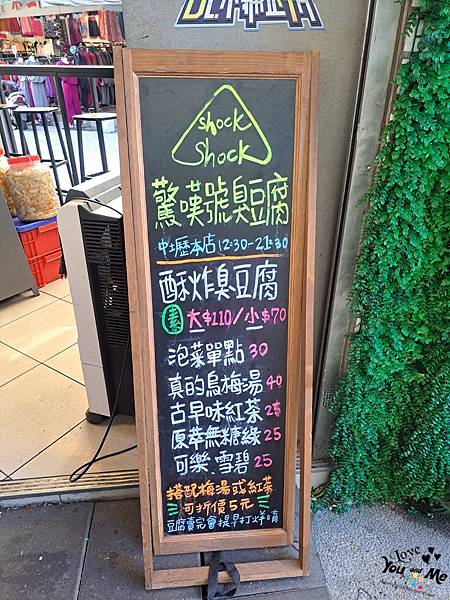 shock
shock
驚嘆號臭豆腐
中壢本店12:30-21:30
酥炸臭豆腐
素 大$110/小$70
泡菜單點 30
真的烏梅湯 40
古早味紅茶 25
原萃無糖綠 25
可樂、雪碧 25
搭配梅湯或紅茶
可折價5元
豆腐賣完會提早打烊唷
love
You and Me